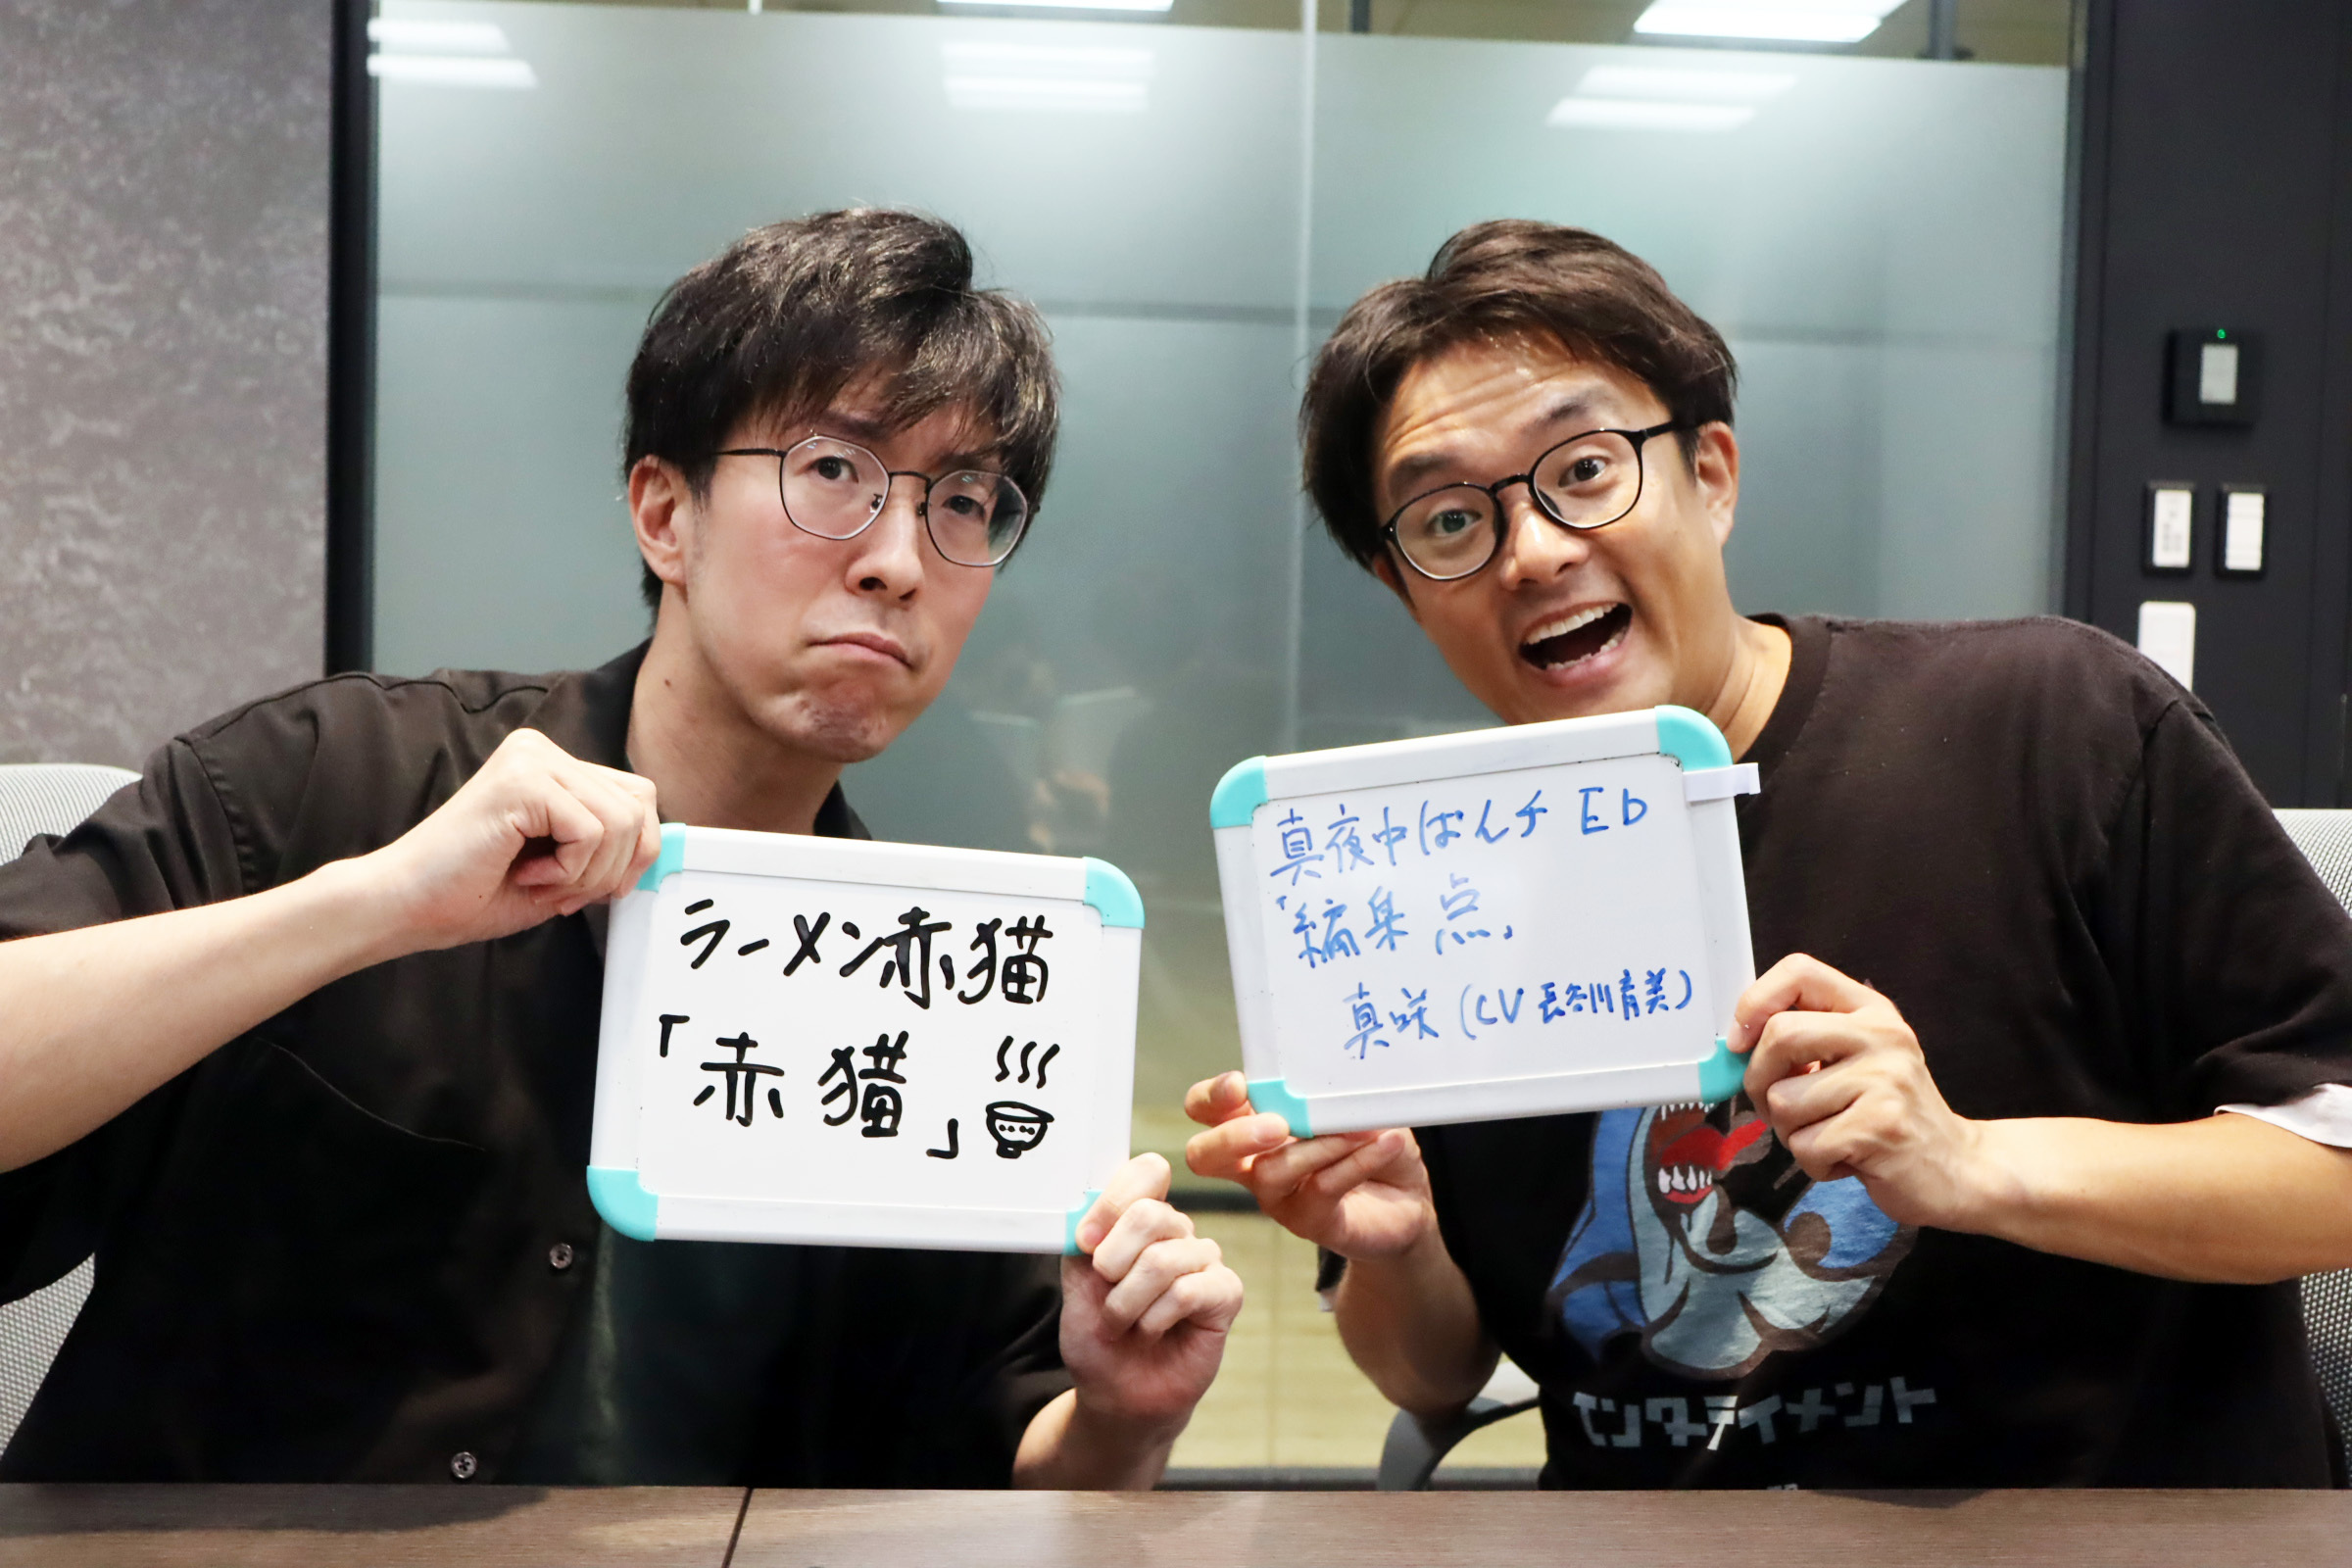 ラーメン赤猫
「赤猫」
真夜中ぱんチ ED
「編集点」
真咲(CV 長谷川育美)
エンターテイメント